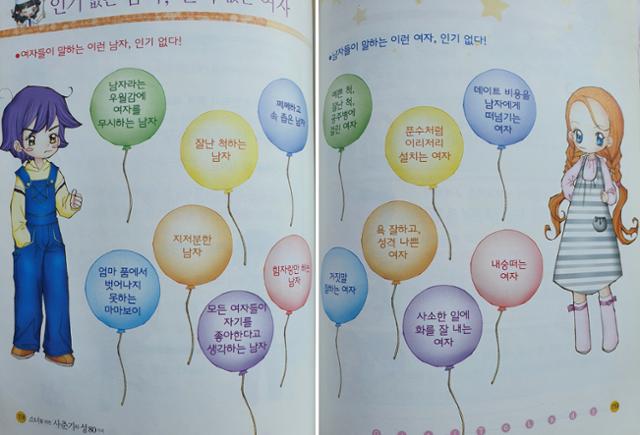 인기 없는 남자, 인기 없는 여자
•여자들이 말하는 이런 남자, 인기 없다!
남자라는
우월감에
여자를
무시하는 남자
잘난 척하는
남자
쩨쩨하고
속 좁은 남자
지저분한
남자
엄마 품에서
벗어나지
못하는
마마보이
힘자랑만 하는
남자
모든 여자들이
자기를
좋아한다고
생각하는 남자
사춘기와 성80가지
•남자들이 말하는 이런 여자, 인기 없다!
예쁜 척,
잘난 척,
공주병에
걸린 여자
푼수처럼
이리저리
설치는 여자
데이트 비용을
남자에게
떠넘기는
여자
욕 잘하고,
성격 나쁜
여자
거짓말
잘하는 여자
내숭떠는
여자
사소한 일에
화를 잘 내는
여자